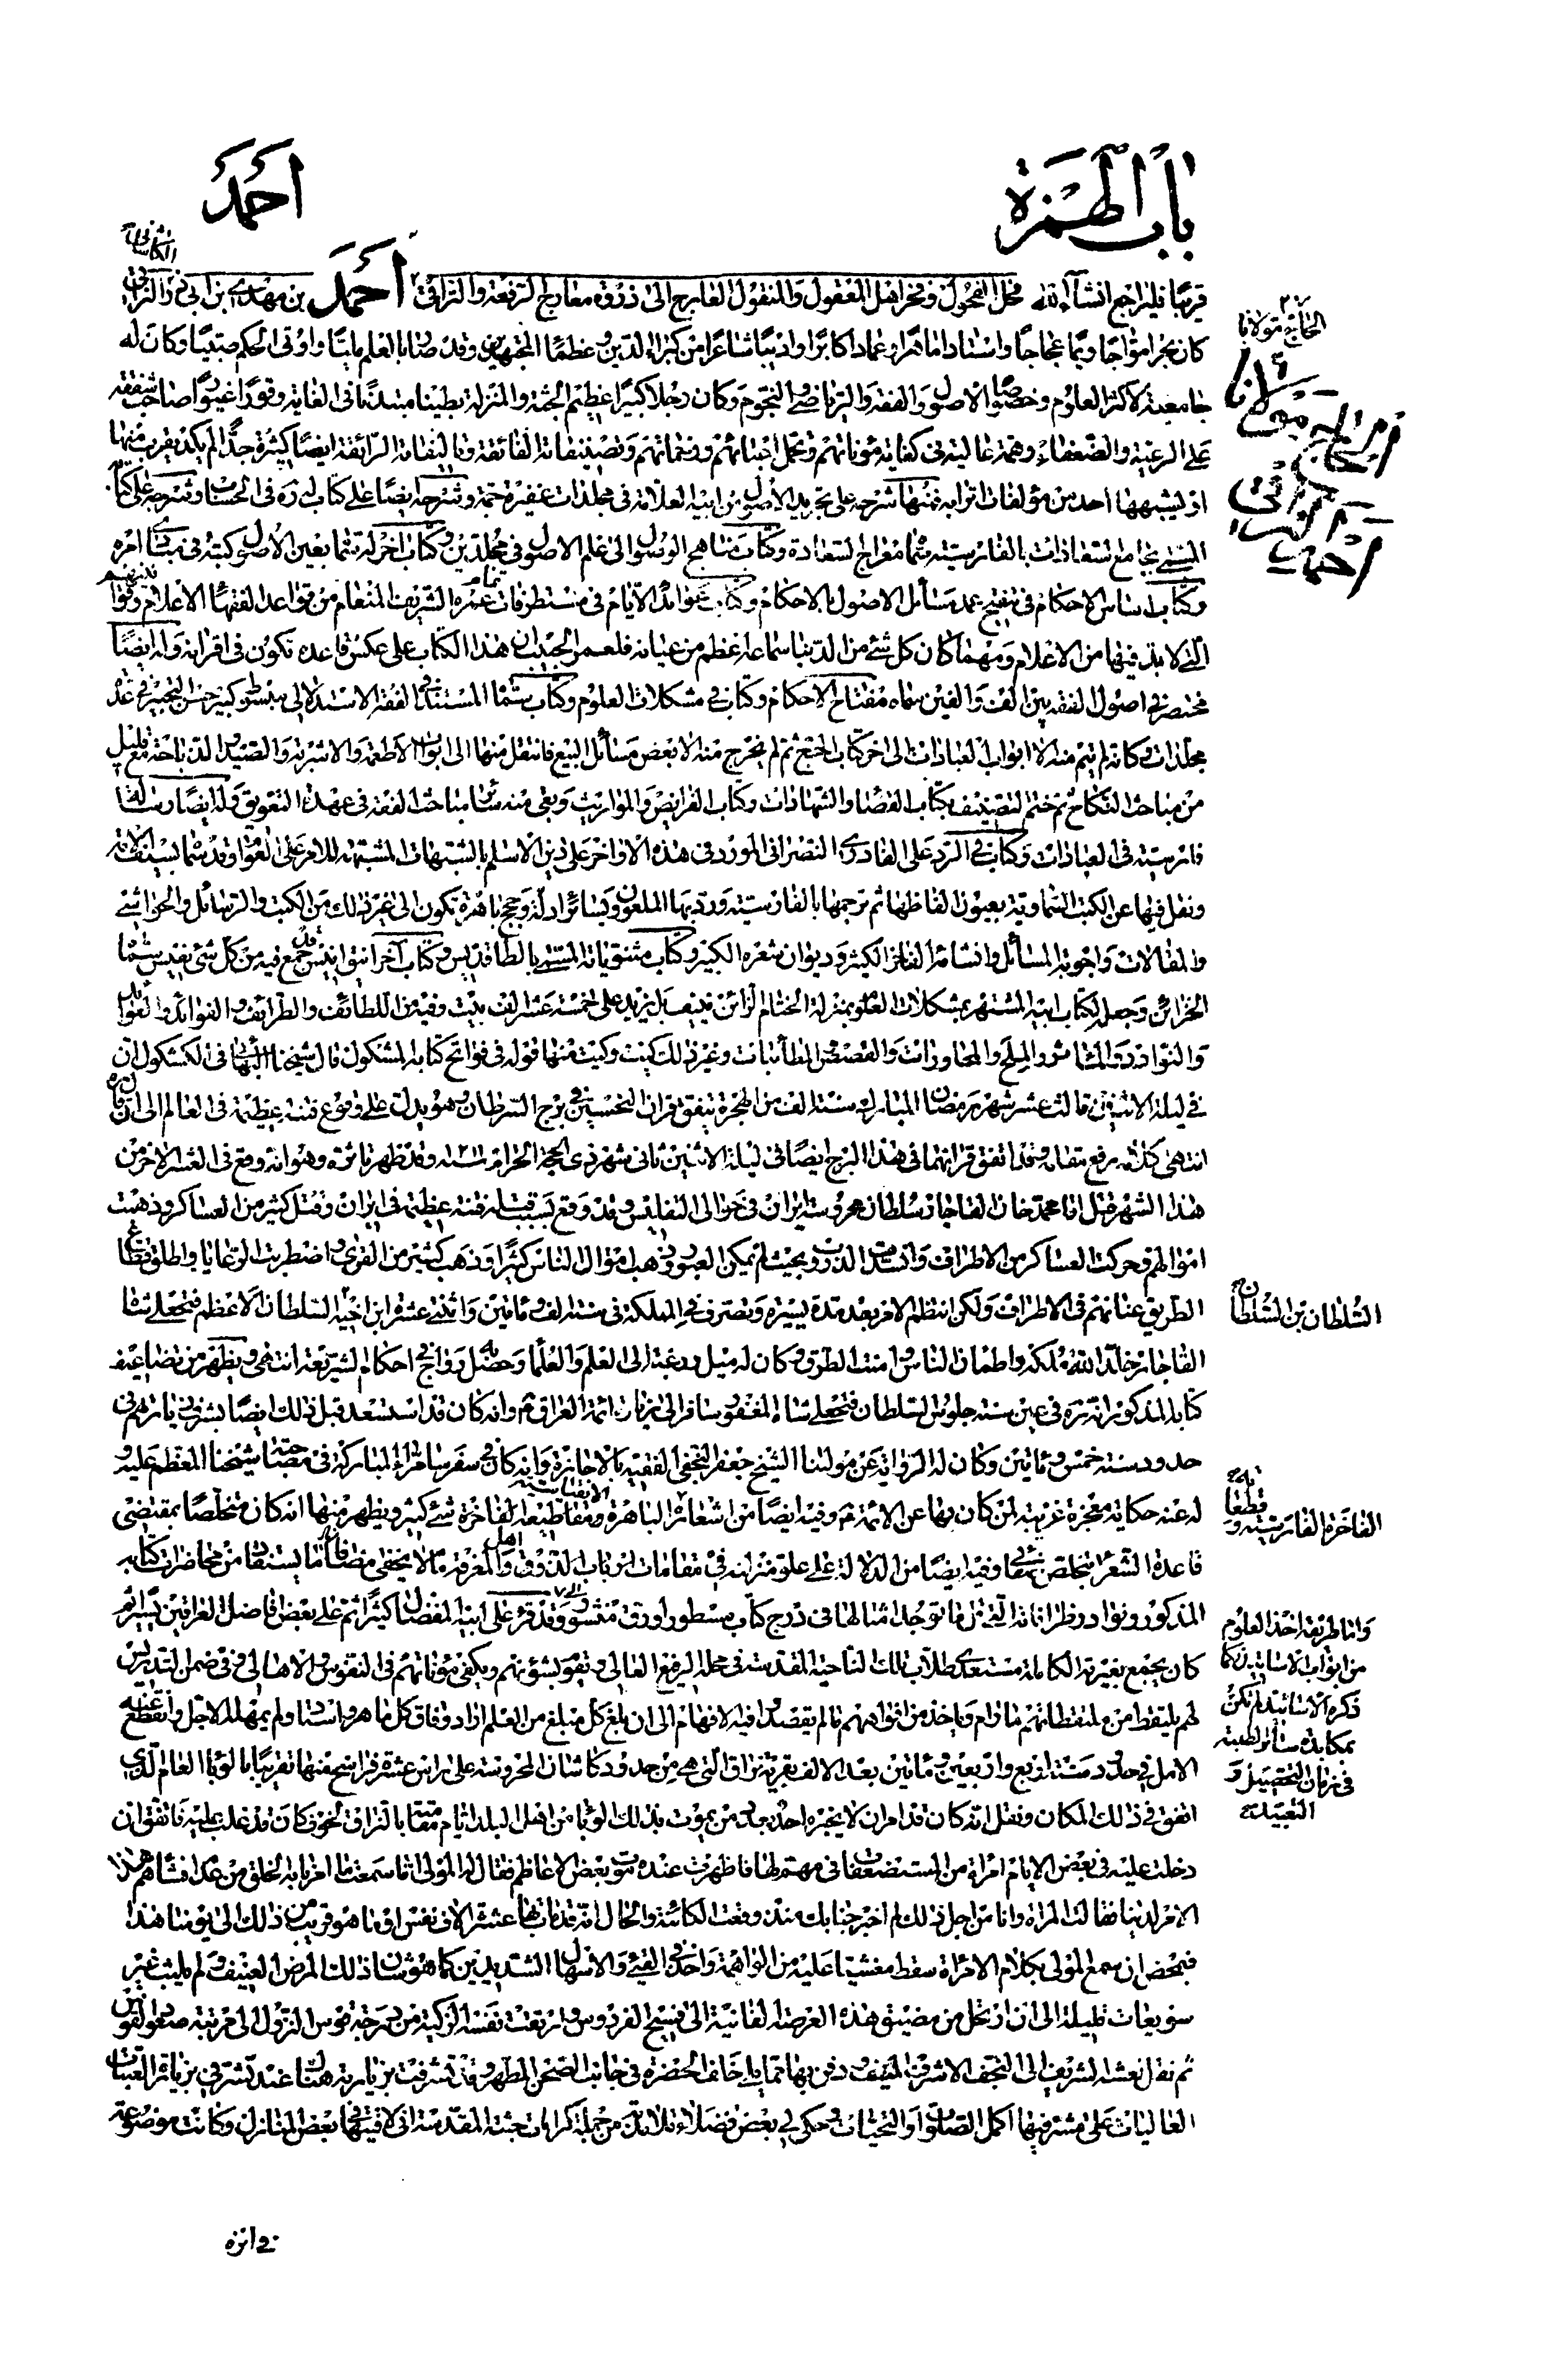 باب الهمزة
احمد
قريبا فليراجع انشاء الله فحل الفحول وفخر اهل المعقول والمنقول العارج الى ذروة معارج الرفعة والتراقى احمد بن مهدى بن ابى ذر النراقى الكاشانى
كان بحرا مواجا ويما عجاجا واستاذا ماهرا وعمادا كابرا واديبا شاعرا من كبراء الدين وعظماء المجتهدين وقد صار بالعلم مليّا واوتى الحكم صبيا وكان له
جامعية لاكثر العلوم وخصوصا الاصول والفقه والرياضى والنجوم وكان رجلا كبيرا عظيم الجثة والمنزلة بطينا متدينا فى الغاية وقورا غيورا صاحب شفقة
على الرعية والضعفاء وهمة عالية فى كفاية مؤناتهم وتحمل اعبائهم وزحماتهم وتصنيفاته الفائقة وتاليفاته الرائقة ايضا كثيرة جدا لم يكد يقرب منها
او يشبهها احد من مؤلفات اترابه فمنها شرحه على تجريد الاصول من ابيه العلامة فى مجلدات غفيرة جمة وشرحه ايضا على كتاب له ره فى الحساب وشرحه على كتابه
المسمى بجامع السعادات بالفارسية سماه معراج السعادة وكتاب مناهج الوصول الى علم الاصول فى مجلدين وكتاب اخر له سماه بعين الاصول كتبه فى مبادى امره
وكتاب اساس الاحكام فى تنقيح عمد مسائل الاصول بالاحكام وكتاب عوائد الايام فى مستطرفات تمام عمره الشريف المنعام من قواعد الفقهاء الاعلام وقوانينهم
التى لا بد فيها من الاعلام ومهما كان كل شئ من الدنيا سماعه اعظم من عيانه فلعمر الحبيب ان هذا الكتاب على عكس قاعدة تكون فى اقرانه وله ايضا
مختصر فى اصول الفقه بين الف والفين سماه مفتاح الاحكام وكتاب فى مشكلات العلوم وكتاب سماه المستند فى الفقه الاستدلالى مبسوط كبير حسن التحبير فى عدة
مجلدات وكانه لم يتم منه الا ابواب العبادات الى اخر كتاب الحج ثم لم يخرج منه الا بعض مسائل البيع فانتقل منها الى ابواب الاطعمة والاشربة والصيد والذباحة مع قليل
من مباحث النكاح ثم ختم التصنيف بكتاب القضاء والشهادات وكتاب الفرايض والمواريث وبقى منه سائر مباحث الفقه فى عهدة التعويق وله ايضا رسالة
فارسية فى العبادات وكتاب فى الرد على الفادرى النصرانى المورد فى هذه الاواخر على دين الاسلام بالشبهات المشتبهة للامر على العوام وقد سماه بسيف الامة
ونقل فيها عن الكتب السماوية بعيون الفاظها ثم ترجمها بالفارسية ورد بها الملعون وبسائر ادلة وحجج باهرة تكون الى غير ذلك من الكتب والرسائل والحواشى
والمقالات واجوبة المسائل وانشائه الفاخر الكثير وديوان شعره الكبير وكتاب مثنوياته المسمى بالطاقديس وكتاب آخر انيق انيس قد جمع فيه من كل شئ نفيس سماه
الخزائن وجعله لكتاب ابيه المشتهر بمشكلات العلوم بمنزلة الختام الزائن فينيف بل يزيد على خمسة عشر الف بيت وفيه من اللطائف والطرائف والفوائد والعوائد
والنوادر والمآثر والملح والمحاورات والقصص والمطائبات وغير ذلك كيت وكيت منها قوله فى فواتح كتابه المشكول قال شيخنا البهائى فى الكشكول ان
فى ليلة الاثنين ثالث عشر شهر رمضان المبارك سنة الف من الهجرة يتفق قران النحسين فى برج السرطان وهو يدل على وقوع فتنة عظيمة فى العالم الى ان قال ره
انتهى كلامه رفع مقامه وقد اتفق قرانهما فى هذا البرج ايضا فى ليلة الاثنين ثانى شهر ذى الحجة الحرام وقد ظهر تاثيره وهو انه وقع فى العشر الاخر من
هذا الشهر قتل اقا محمد خان القاجار سلطان محروسة ايران فى حوالى التفليس وقد وقع بسبب قتله فتنة عظيمة فى ايران وقتل كثير من العساكر وذهبت
اموالهم وحركت العساكر من الاطراف وانسدت الدروب بحيث لم يمكن العبور وذهب اموال الناس كثيرا وذهب كثير من القرى واضطربت الرعايا واطلق قطاع
الطريق عنانهم فى الاطراف ولكن انتظم الامر بعد مدة يسيرة وتصرف فى المملكة فى سنة الف ومائتين واثنتى عشرة ابن اخيه السلطان الاعظم فتحعلى شاه
القاجار خلد الله ملكه واطمان الناس وامنت الطرق وكان له ميل ورغبة الى العلم والعلماء وحصل به رواج فى احكام الشريعة انتهى ويظهر من تضاعيف
كتابه المذكور انه ره فى عين سنة جلوس السلطان فتحعلى شاه المغفور سافر الى زيارت ائمة العراق ع وانه كان قد استسعد قبل ذلك ايضا بشرف زيارتهم فى
حدود سنة خمس ومائتين وكان له الرواية عن مولينا الشيخ جعفر النجفى الفقيه بالاجازة وانه كان فى سفر سامراء المباركة فى صحبة شيخنا المعظم عليه و
له عنه حكاية معجزة غريبة لمن كان بها عن الائمة ع وفيه ايضا من اشعاره الباهرة ومقاطيعه الفاخرة شئ كثير ويظهر منها انه كان متخلصا بمقتضى
قاعدة الشعراء بتخلص صفائى وفيه ايضا من الدلالة على علو منزلته فى مقامات ارباب الذوق واهل المعرفة ما لا يخفى مضافا الى ما يستفاد من محاضرات كتابه
المذكور ونوادر ظرافاته التى قل ما توجد امثالها فى درج كتاب مسطور او رق منشور وقد قرء على ابيه المفضال كثيرا ثم على بعض افاضل العراقين يسيرا ثم
كان يجمع بغيرته الكاملة مستعدى طلاب تلك الناحية المقدسة فى محله الرفيع العالى ويقوم بشؤنهم ويكفى مؤناتهم فى النقوس والاهالى وفى ضمن التدريس
لهم يلتقط من ملتقطاتهم ما رام وياخذ من افواههم ما لم يقصدوا فيه الافهام الى ان بلغ كل مبلغ من العلم اراد وفاق كل ماهر واستاد ولم يمهله الاجل وانقطع عنه
الامل فى حدود سنة اربع واربعين ومائتين بعد الالف بقرية نراق التى هى من حدود كاشان المحروسة على راس عشرة فراسخ منها تقريبا بالوباء العام الذى
اتفق فى ذلك المكان ونقل انه كان قد امر ان لا يخبره احد بمن يموت بذلك الوباء من اهل البلد ايام مقامه بالنراق لخوف كان قد غلب عليه فاتفق ان
دخلت عليه فى بعض الايام امراة من المستضعفات فى مهم لها فاظهرت عنده موت بعض الاعاظم فقال لها المولى اما سمعت ما امرنا به الخلق من عدم افشائهم هذا
الامر لدينا فقالت المراة وانا من اجل ذلك لم اخبر جنابك منذ وقعت الكائنة والحال انه قد مات بها عشرة الاف نفس او ما هو قريب من ذلك الى يومنا هذا
فبمحض ان سمع المولى بكلام الامراة سقط مغشيا عليه من الواهمة واخذ فى القئ والاسهال الشديدين كما هو شان ذلك المرض العنيف ولم يلبث غير
سويعات قليلة الى ان ارتحل من مضيق هذه العرصة الفانية الى فسيح الفردوس وارتقت نفسه الزكية من درجة قوس النزول الى مرتبة صعود القوس
ثم نقل نعشه الشريف الى النجف الاشرف المنيف ودفن بها مما يلى خلف الحضرة فى جانب الصحن المطهر وقد تشرفت بزيارته هنالك عند تشرفى بزيارة العتبات
العاليات على مشرفيها اكمل الصلوات والتحيات وحكى لى بعض فضلاء تلامذته من جملة كرامات جثته المقدسة انى لاقيتها فى بعض المنازل وكانت موضوعة
فى دائره
٢٧
الحاج مولانا
السلطان بن السلطان
الفاخرة الفارسية و
واما طريقة اخذ العلوم
من ابواب الاساتيد كما
ذكره الاساتيد لم تكن
بمكابدة سائر الطلبة
فى زمان التحصيل و
التعب